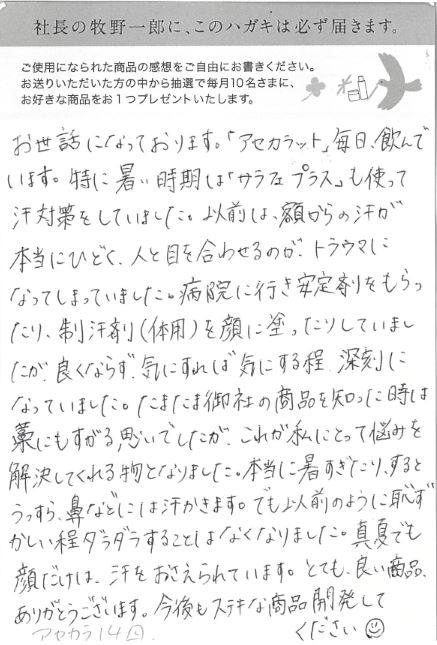 社長の牧野一郎に、このハガキは必ず届きます。
ご使用になられた商品の感想をご自由にお書きください。
お送りいただいた方の中から抽選で毎月10名さまに、
お好きな商品をお1つプレゼントいたします。
お世話になっております。「アセカラット」毎日、飲んで
います。特に暑い時期は「サラフェプラス」も使って
汗対策をしていました。以前は、額からの汗が
本当にひどく、人と目を合わせるのが、トラウマに
なってしまっていました。病院に行き安定剤をもらっ
たり、制汗剤(体用)を顔に塗ったりしていまし
たが、良くならず、気にすれば気にする程、深刻に
なっていました。たまたま御社の商品を知った時は
藁にもすがる思いでしたが、これが私にとって悩みを
解決してくれる物となりました。本当に暑すぎたり、すると
うっすら、鼻などには汗かきます。でも以前のように恥ず
かしい程ダラダラすることはなくなりました。真夏でも
顔だけは、汗をおさえられています。とても、良い商品、
ありがとうございます。今後もステキな商品開発して
ください☺
アセカラ14回